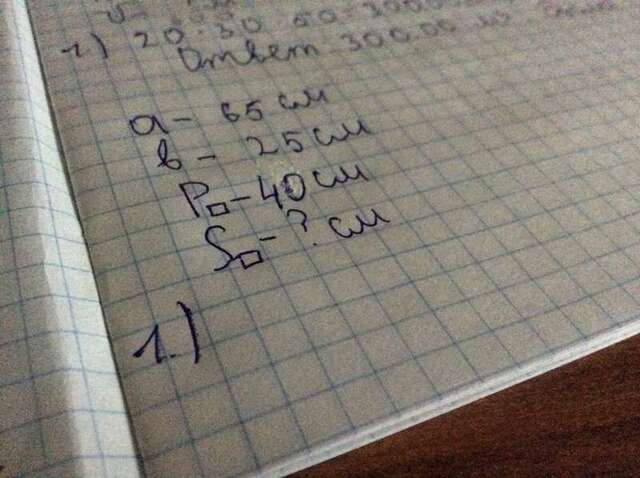 1) 20·30·50=3000
Ответ 30000
а - 65 см
в - 25 см
P□ - 40 см
S□ - ? см
1.)